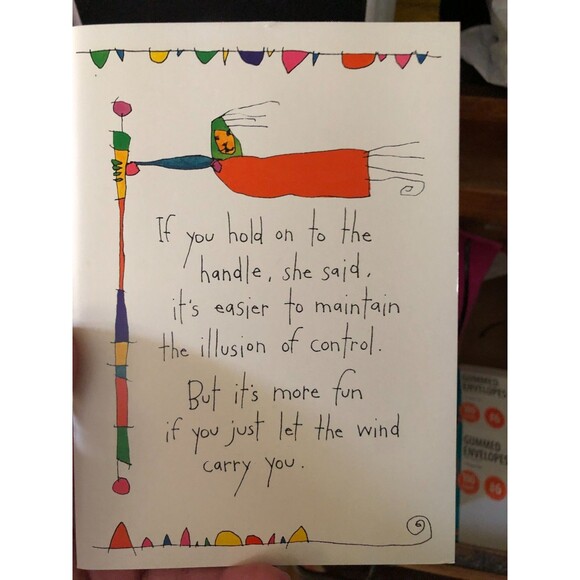 If you hold on to the
handle, she said,
it's easier to maintain
the illusion of control.
But it's more fun
if you just let the wind
carry you.
GUMMED
ENVELOPES
#6
GUMMED
ENVELOPES
100
#6